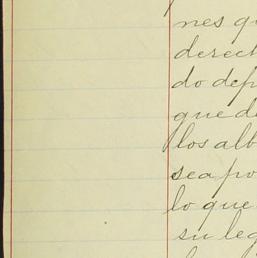 nes q
derech
do dep
que d
los alb
sea po
lo que
su leg